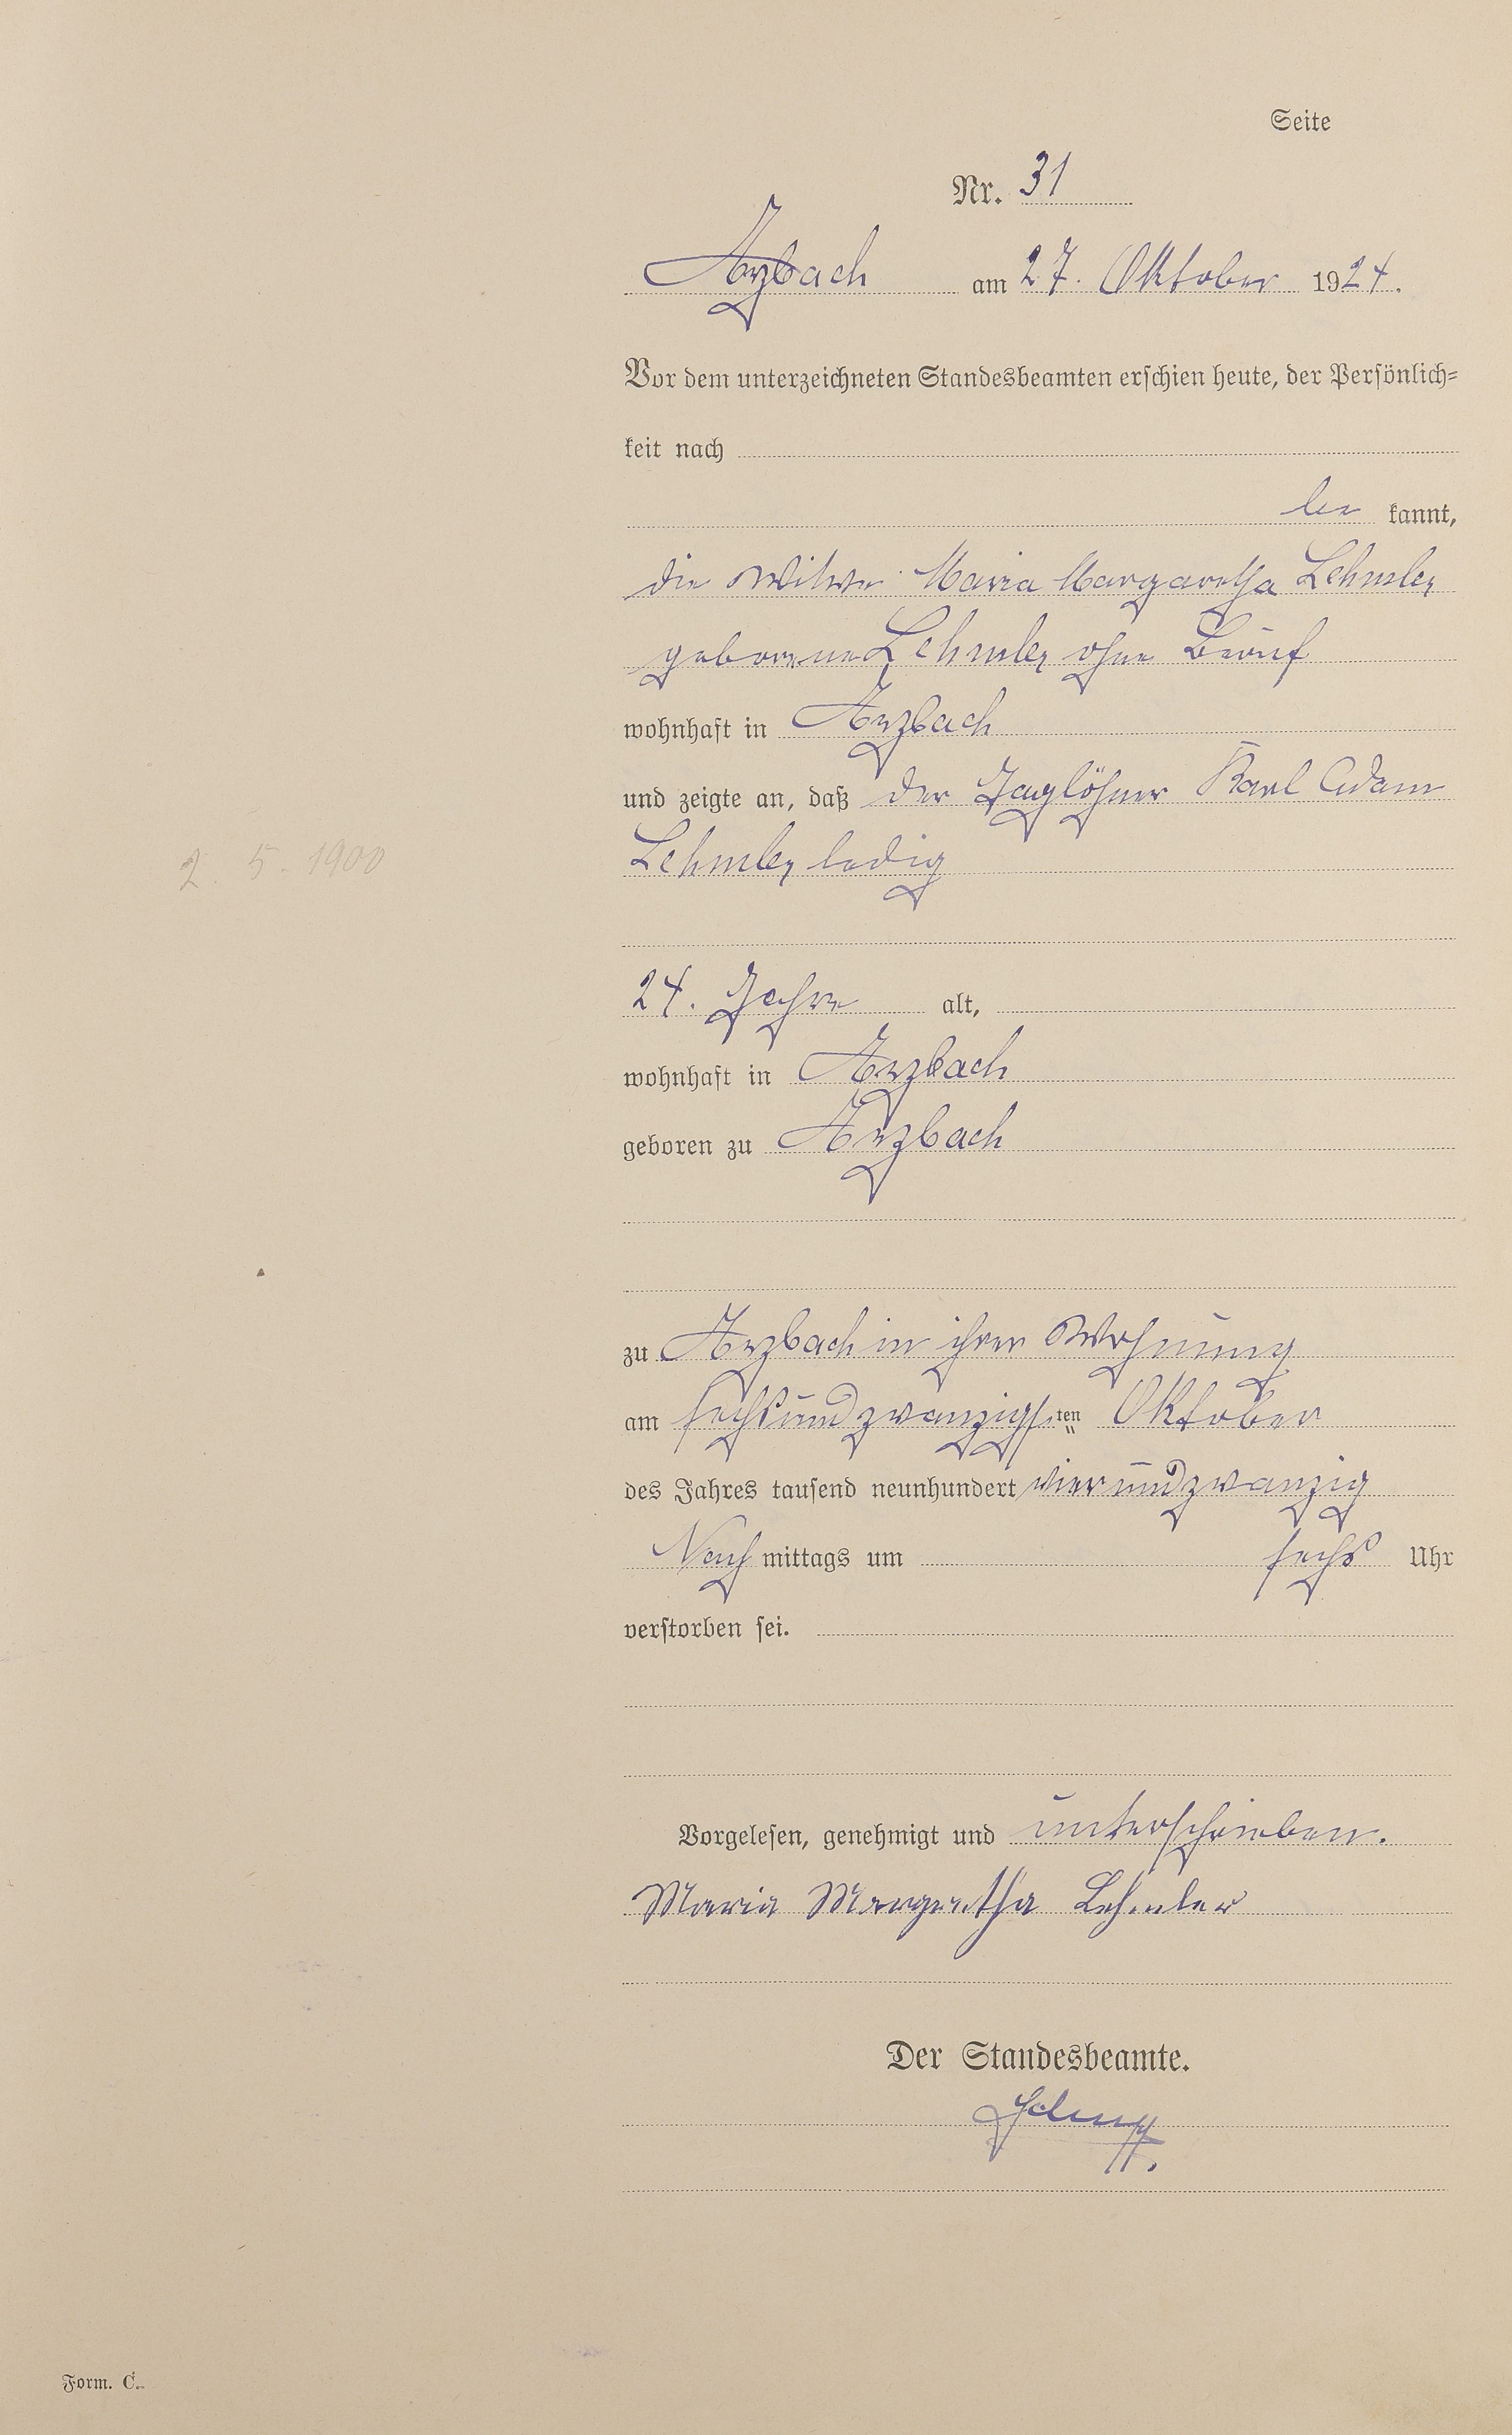 Seite
Nr. 31
Arzbach am 27. Oktober 1924.
Vor dem unterzeichneten Standesbeamten erschien heute, der Persönlich-
keit nach
be kannt,
die Witwe Maria Margaretha Lehmler
geborene Lehmler ohne Beruf
wohnhaft in Arzbach
und zeigte an, daß der Taglöhner Karl Adam
2. 5. 1900
Lehmler ledig
24. Jahre alt,
wohnhaft in Arzbach
geboren zu Arzbach
zu Arzbach in ihrer Wohnung
am sechsundzwanzigsten Oktober
des Jahres tausend neunhundert vierundzwanzig
Nach mittags um sechs Uhr
verstorben sei.
Vorgelesen, genehmigt und unterschrieben.
Maria Margretha Lehmler
Der Standesbeamte.
Form. C.